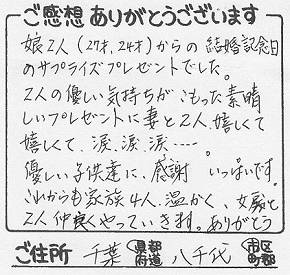 ご感想 ありがとうございます
娘2人(27才、24才)からの 結婚記念日
のサプライズプレゼントでした。
2人の優しい気持ちが こもった素晴
しいプレゼントに妻と2人、嬉しくて
嬉しくて、涙、涙、涙‥‥。
優しい子供達に、感謝 いっぱいです。
これからも家族4人、温かく、女家と
2人仲良くやっていきます。ありがとう
ご住所 千葉 都道府県 八千代 市区町郡